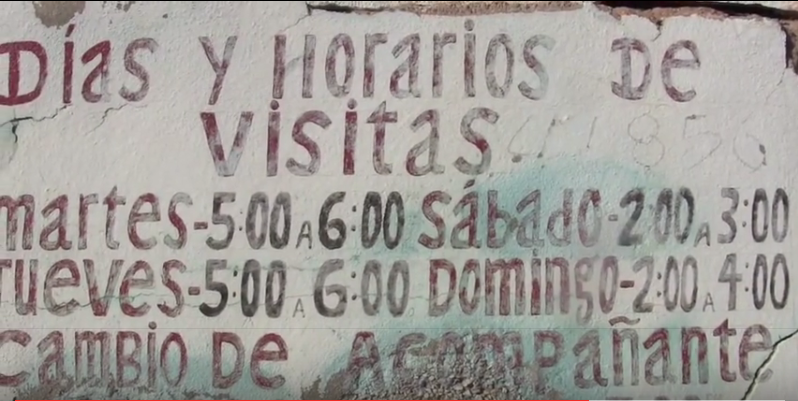 Días y Horarios De
Visitas
martes-5:00 A 6:00 Sábado-2:00 A 3:00
Jueves-5:00 A 6:00 Domingo-2:00 A 4:00
Cambio De Acompañante